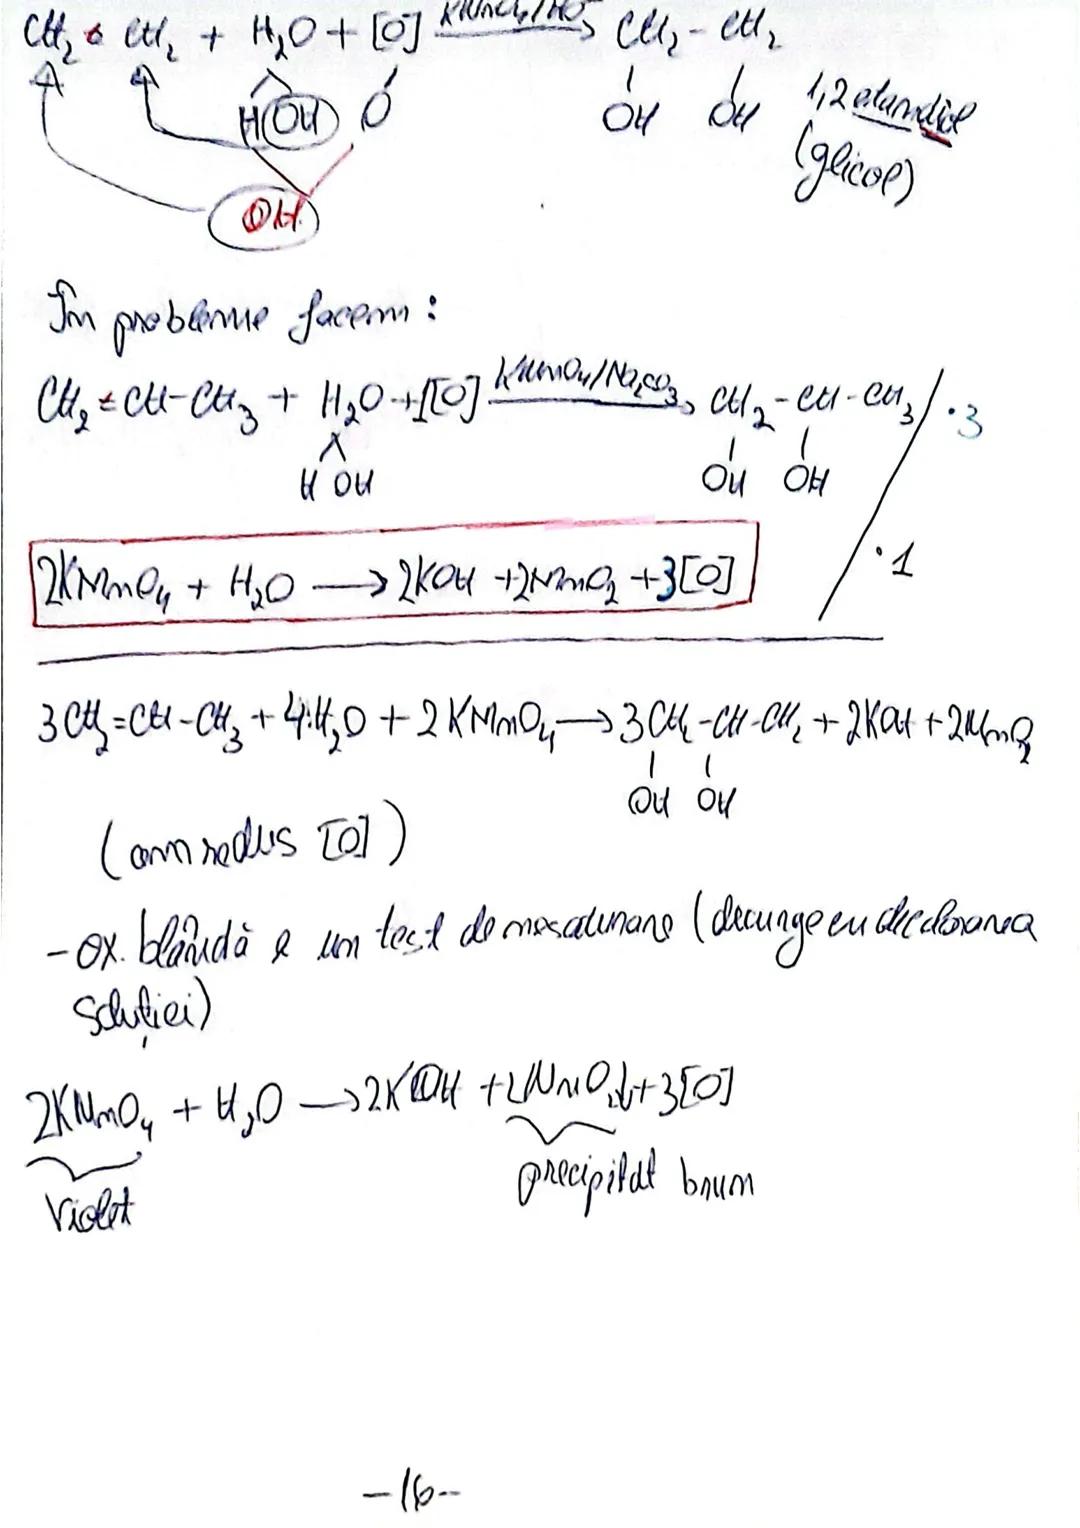 CH₂ = CH₂ + H₂O + [O] → CH₂ - CH₂
H OH O OH OH 1,2 etandiol
(glicol)
OH
În probleme facem:
CH₂ = CH-CH₃ + H₂O + [O] KMnO₄/Na₂CO₃ → CH₂ - CH - CH₃ / ·3
H OH OH OH
2KMnO₄ + H₂O → 2KOH + 2MnO₂ + 3[O] ·1
3CH₂=CH-CH₃ + 4H₂O + 2KMnO₄ → 3CH₂-CH-CH₂ + 2KOH + 2MnO₂
OH OH
(am redus [O])
- OX. blândă e un test de nesaturare (decurge cu decolorarea
soluției)
2KMnO₄ + H₂O → 2KOH + 2MnO₂↓ + 3[O]
violet precipitat brun
-16-